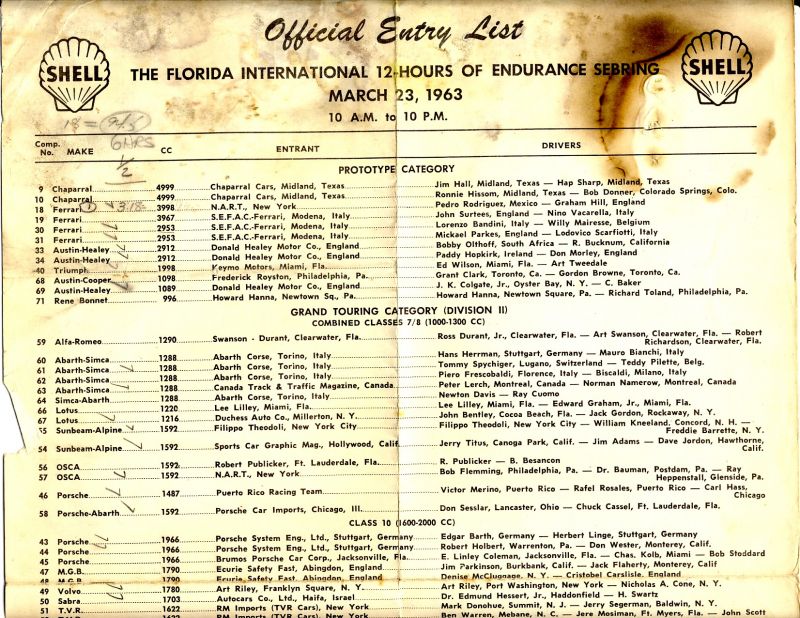 Official Entry List
SHELL
SHELL
THE FLORIDA INTERNATIONAL 12-HOURS OF ENDURANCE SEBRING
MARCH 23, 1963
10 A.M. to 10 P.M.
6 HRS
1/2
Comp. No. MAKE CC ENTRANT DRIVERS
PROTOTYPE CATEGORY
9 Chaparral 4999 Chaparral Cars, Midland, Texas Jim Hall, Midland, Texas — Hap Sharp, Midland, Texas
10 Chaparral 4999 Chaparral Cars, Midland, Texas Ronnie Hissom, Midland, Texas — Bob Donner, Colorado Springs, Colo.
18 Ferrari 3998 N.A.R.T., New York Pedro Rodriguez, Mexico — Graham Hill, England
19 Ferrari 3967 S.E.F.A.C.-Ferrari, Modena, Italy John Surtees, England — Nino Vacarella, Italy
30 Ferrari 2953 S.E.F.A.C.-Ferrari, Modena, Italy Lorenzo Bandini, Italy — Willy Mairesse, Belgium
31 Ferrari 2953 S.E.F.A.C.-Ferrari, Modena, Italy Mickael Parkes, England — Lodovico Scarfiotti, Italy
33 Austin-Healey 2912 Donald Healey Motor Co., England Bobby Olthoff, South Africa — R. Bucknum, California
34 Austin-Healey 2912 Donald Healey Motor Co., England Paddy Hopkirk, Ireland — Don Morley, England
40 Triumph 1998 Keymo Motors, Miami, Fla. Ed Wilson, Miami, Fla. — Art Tweedale
68 Austin-Cooper 1098 Frederick Royston, Philadelphia, Pa. Grant Clark, Toronto, Ca. — Gordon Browne, Toronto, Ca.
69 Austin-Healey 1089 Donald Healey Motor Co., England J. K. Colgate, Jr., Oyster Bay, N. Y. — C. Baker
71 Rene Bonnet 996 Howard Hanna, Newtown Sq., Pa. Howard Hanna, Newtown Square, Pa. — Richard Toland, Philadelphia, Pa.
GRAND TOURING CATEGORY (DIVISION II)
COMBINED CLASSES 7/8 (1000-1300 CC)
59 Alfa-Romeo 1290 Swanson - Durant, Clearwater, Fla. Ross Durant, Jr., Clearwater, Fla. — Art Swanson, Clearwater, Fla. — Robert
Richardson, Clearwater, Fla.
60 Abarth-Simca 1288 Abarth Corse, Torino, Italy Hans Herrman, Stuttgart, Germany — Mauro Bianchi, Italy
61 Abarth-Simca 1288 Abarth Corse, Torino, Italy Tommy Spychiger, Lugano, Switzerland — Teddy Pilette, Belg.
62 Abarth-Simca 1288 Abarth Corse, Torino, Italy Piero Frescobaldi, Florence, Italy — Biscaldi, Milano, Italy
63 Abarth-Simca 1288 Canada Track & Traffic Magazine, Canada Peter Lerch, Montreal, Canada — Norman Namerow, Montreal, Canada
64 Simca-Abarth 1288 Abarth Corse, Torino, Italy Newton Davis — Ray Cuomo
66 Lotus 1220 Lee Lilley, Miami, Fla. Lee Lilley, Miami, Fla. — Edward Graham, Jr., Miami, Fla.
67 Lotus 1216 Duchess Auto Co., Millerton, N. Y. John Bentley, Cocoa Beach, Fla. — Jack Gordon, Rockaway, N. Y.
Sunbeam-Alpine 1592 Filippo Theodoli, New York City Filippo Theodoli, New York City — William Kneeland, Concord, N. H. —
Freddie Barrette, N. Y.
54 Sunbeam-Alpine 1592 Sports Car Graphic Mag., Hollywood, Calif. Jerry Titus, Canoga Park, Calif. — Jim Adams — Dave Jordon, Hawthorne,
Calif.
56 OSCA 1592 Robert Publicker, Ft. Lauderdale, Fla. R. Publicker — B. Besancon
57 OSCA 1592 N.A.R.T., New York Bob Flemming, Philadelphia, Pa. — Dr. Bauman, Postdam, Pa. — Ray
Heppenstall, Glenside, Pa.
46 Porsche 1487 Puerto Rico Racing Team Victor Merino, Puerto Rico — Rafel Rosales, Puerto Rico — Carl Hass,
Chicago
58 Porsche-Abarth 1592 Porsche Car Imports, Chicago, Ill. Don Sesslar, Lancaster, Ohio — Chuck Cassel, Ft. Lauderdale, Fla.
CLASS 10 (1600-2000 CC)
43 Porsche 1966 Porsche System Eng., Ltd., Stuttgart, Germany Edgar Barth, Germany — Herbert Linge, Stuttgart, Germany
44 Porsche 1966 Porsche System Eng., Ltd., Stuttgart, Germany Robert Holbert, Warrenton, Pa. — Don Wester, Monterey, Calif.
45 Porsche 1966 Brumos Porsche Car Corp., Jacksonville, Fla. E. Linley Coleman, Jacksonville, Fla. — Chas. Kolb, Miami — Bob Stoddard
47 M.G.B. 1790 Ecurie Safety Fast, Abingdon, England Jim Parkinson, Burkbank, Calif. — Jack Flaherty, Monterey, Calif
48 M.G.B. 1790 Ecurie Safety Fast, Abingden, England Denise McClugnage, N. Y. — Cristobel Carslisle, England
49 Volvo 1780 Art Riley, Franklyn Square, N. Y. Art Riley, Port Washington, New York — Nicholas A. Cone, N. Y.
50 Sabra 1703 Autocars Co., Ltd., Haifa, Israel Dr. Edmund Hessert, Jr., Haddonfield — H. Swartz
51 T.V.R. 1622 RM Imports (TVR Cars), New York Mark Donohue, Summit, N. J. — Jerry Segerman, Baldwin, N. Y.
1622 RM Imports (TVR Cars), New York Ben Warren, Mebane, N. C. — Jere Mosiman, Ft. Myers, Fla. — John Scott